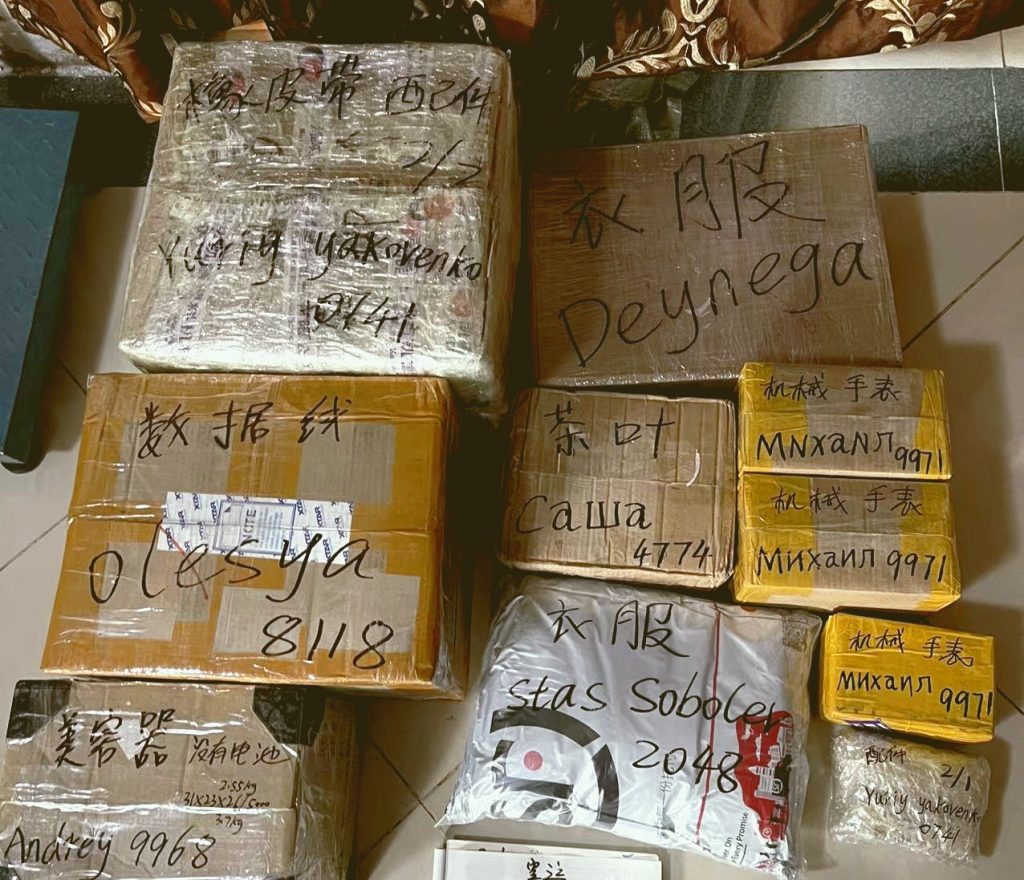 橡皮带 配件
2/2
Yuriy yakovenko
0741
衣服
Deynega
数据线
XTAR
NOTE
olesya
8118
茶叶
Саша
4774
机械 手表
МNхаNл 9971
机械 手表
Михаил 9971
衣服
stas Sobolev
2048
机械 手表
Михаил 9971
美容器 没有电池
2.55kg
31x23x26/5000
3.7kg
Andrey 9968
配件
2/1
Yuriy yakovenko
0741